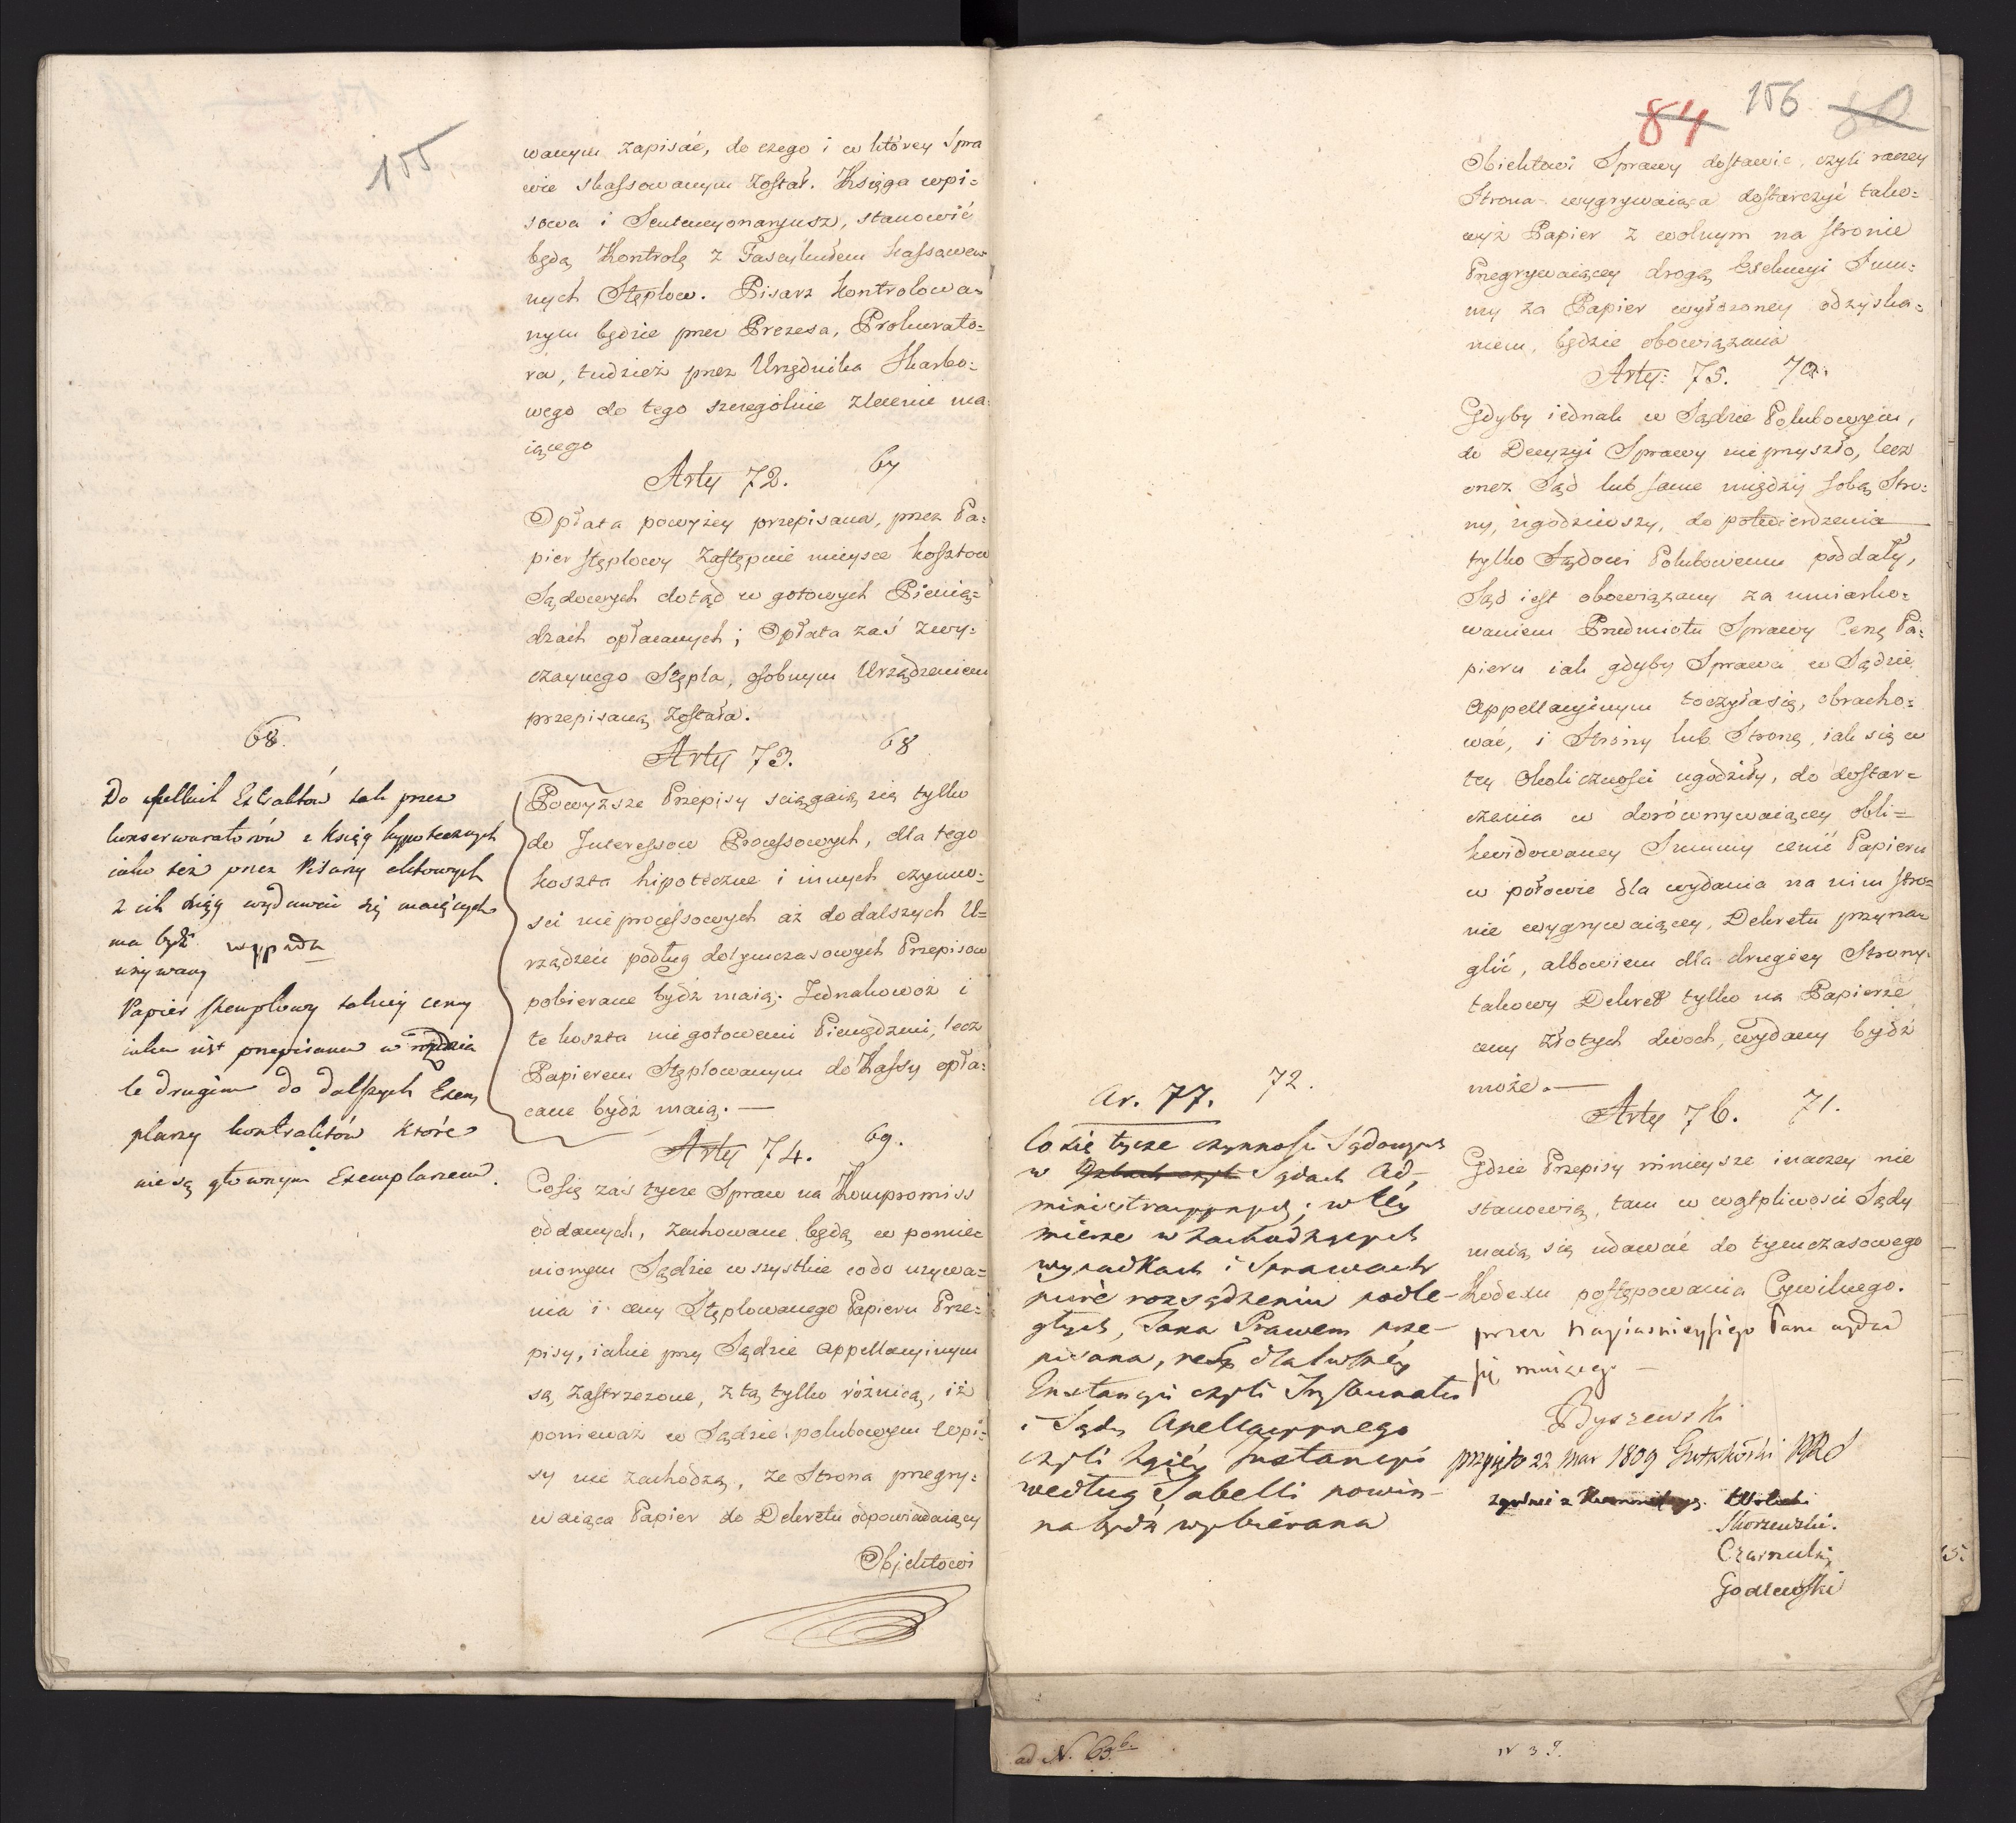 155
wanym zapisać, do czego i w którey Spra
wie skassowanym został. Księga wpi=
sowa i Sentencyonaryusz, stanowić
będą Kontrolę z Fascykułem kassowa
nych Stęplow. Pisarz kontrolowa=
nym będzie przez Prezesa, Prokurato=
ra, tudzież przez Urzędnika Skarbo=
wego do tego szczególnie zlecenie ma
iącego
Arty 72. 67
Opłata powyżey przepisana, przez Pa=
pier stęplowy zastępuie mieysce kosztow
Sądowych dotąd w gotowych Pienią=
dzach opłacanych; Opłata zaś zwy=
czaynego Stępla, osobnym Urządzeniem
przepisaną została.
Arty 73. 68
Powyższe Przepisy sciągaią się tylko
do Interessow Processowych, dla tego
koszta hipoteczne i innych czynno=
sci nieprocessowych aż do dalszych U=
rządzeń podług dotymczasowych Przepisow
pobierane bydź maią. Jednakowoż i
te koszta nie gotowemi Pieniędzmi, lecz
Papierem Stęplowanym do Kassy opła=
cane bydź maią. —
Arty 74. 69.
Co się zaś tycze Spraw na Kompromiss
oddanych, zachowane będą w pomie=
nionym Sądzie wszystkie co do używa=
nia i ceny Stęplowanego Papieru Prze=
pisy, iakie przy Sądzie Appellacyinym
są zastrzeżone, z tą tylko różnicą, iż
ponieważ w Sądzie polubowym wpi=
sy nie zachodzą, że Strona przegry=
waiąca Papier do Dekretu odpowiadaiący
Objektowi
68.
Do Extraktów tak przez
konserwatorów z ksiąg hypotecznych
iako też przez Pisarzy aktowych
z ich ksiąg wydawać się maiących
ma bydź wypada
używany
Papier stemplowy takiey ceny
iaka iest przepisana w
le drugim do dalszych Exem
plarzy kontraktów które
nie są głównym Exemplarzem.
84 156 80
Obiektowi Sprawy dostawić, czyli raczey
Strona wygrywaiąca dostarczyć tako=
wyż Papier z wolnym na stronie
Przegrywaiącey drogą Exekucyi Sum=
my za Papier wyłożoney odzyska=
niem, będzie obowiązana
Arty: 75. 70.
Gdyby iednak w Sądzie Polubowym,
do Decyzyi Sprawy nie przyszło, lecz
onez Sąd lub same między sobą Stro=
ny, ugodziwszy, do potwierdzenia
tylko Sądowi Polubowemu poddały,
Sąd iest obowiązany za umiarko=
waniem Przedmiotu Sprawy Cenę Pa=
pieru iak gdyby Sprawa w Sądzie
Appellacyinym toczyła się, obracho=
wać, i Strony lub Stronę, iak się w
tey okoliczności ugodziły, do dostar=
czenia w dorównywaiącey obli=
kwidowaney Summy cenie Papieru
w połowie dla wydania na nim stro=
nie wygrywaiącey, Dekretu przyna
glić, albowiem dla drugiey Strony
takowy Dekret tylko na Papierze
ceny Złotych dwoch, wydany bydź
może. —
Arty 76. 71.
Gdzie Przepisy ninieysze inaczey nie
stanowią, tam w wątpliwosci Sądy
maią się udawać do tymczasowego
Kodexu postępowania Cywilnego.
przez Nayiasnieyszego Pana wydać
się maiącego —
Byszewski
przyięto 22 Mar 1809 Gutakowski PRS
Wolicki
Skorzewski.
Czarnecki
Godlewski
Ar. 77. 72.
Co się tycze czynności Sądowych
w Sądach Ad-
ministracyynych; w tey
mierze w zachodzących
wypadkach i Sprawach
pisać rozsądzeniu podle-
głych, Taxa Prawem prze-
pisana, dla Iwszey
Instancyi czyli Trybunału
i Sądu Apellacyynego
czyli 2giey Instancyi
według Tabelli powin-
na bydź wybierana
ad N. 63.b.
N 39.